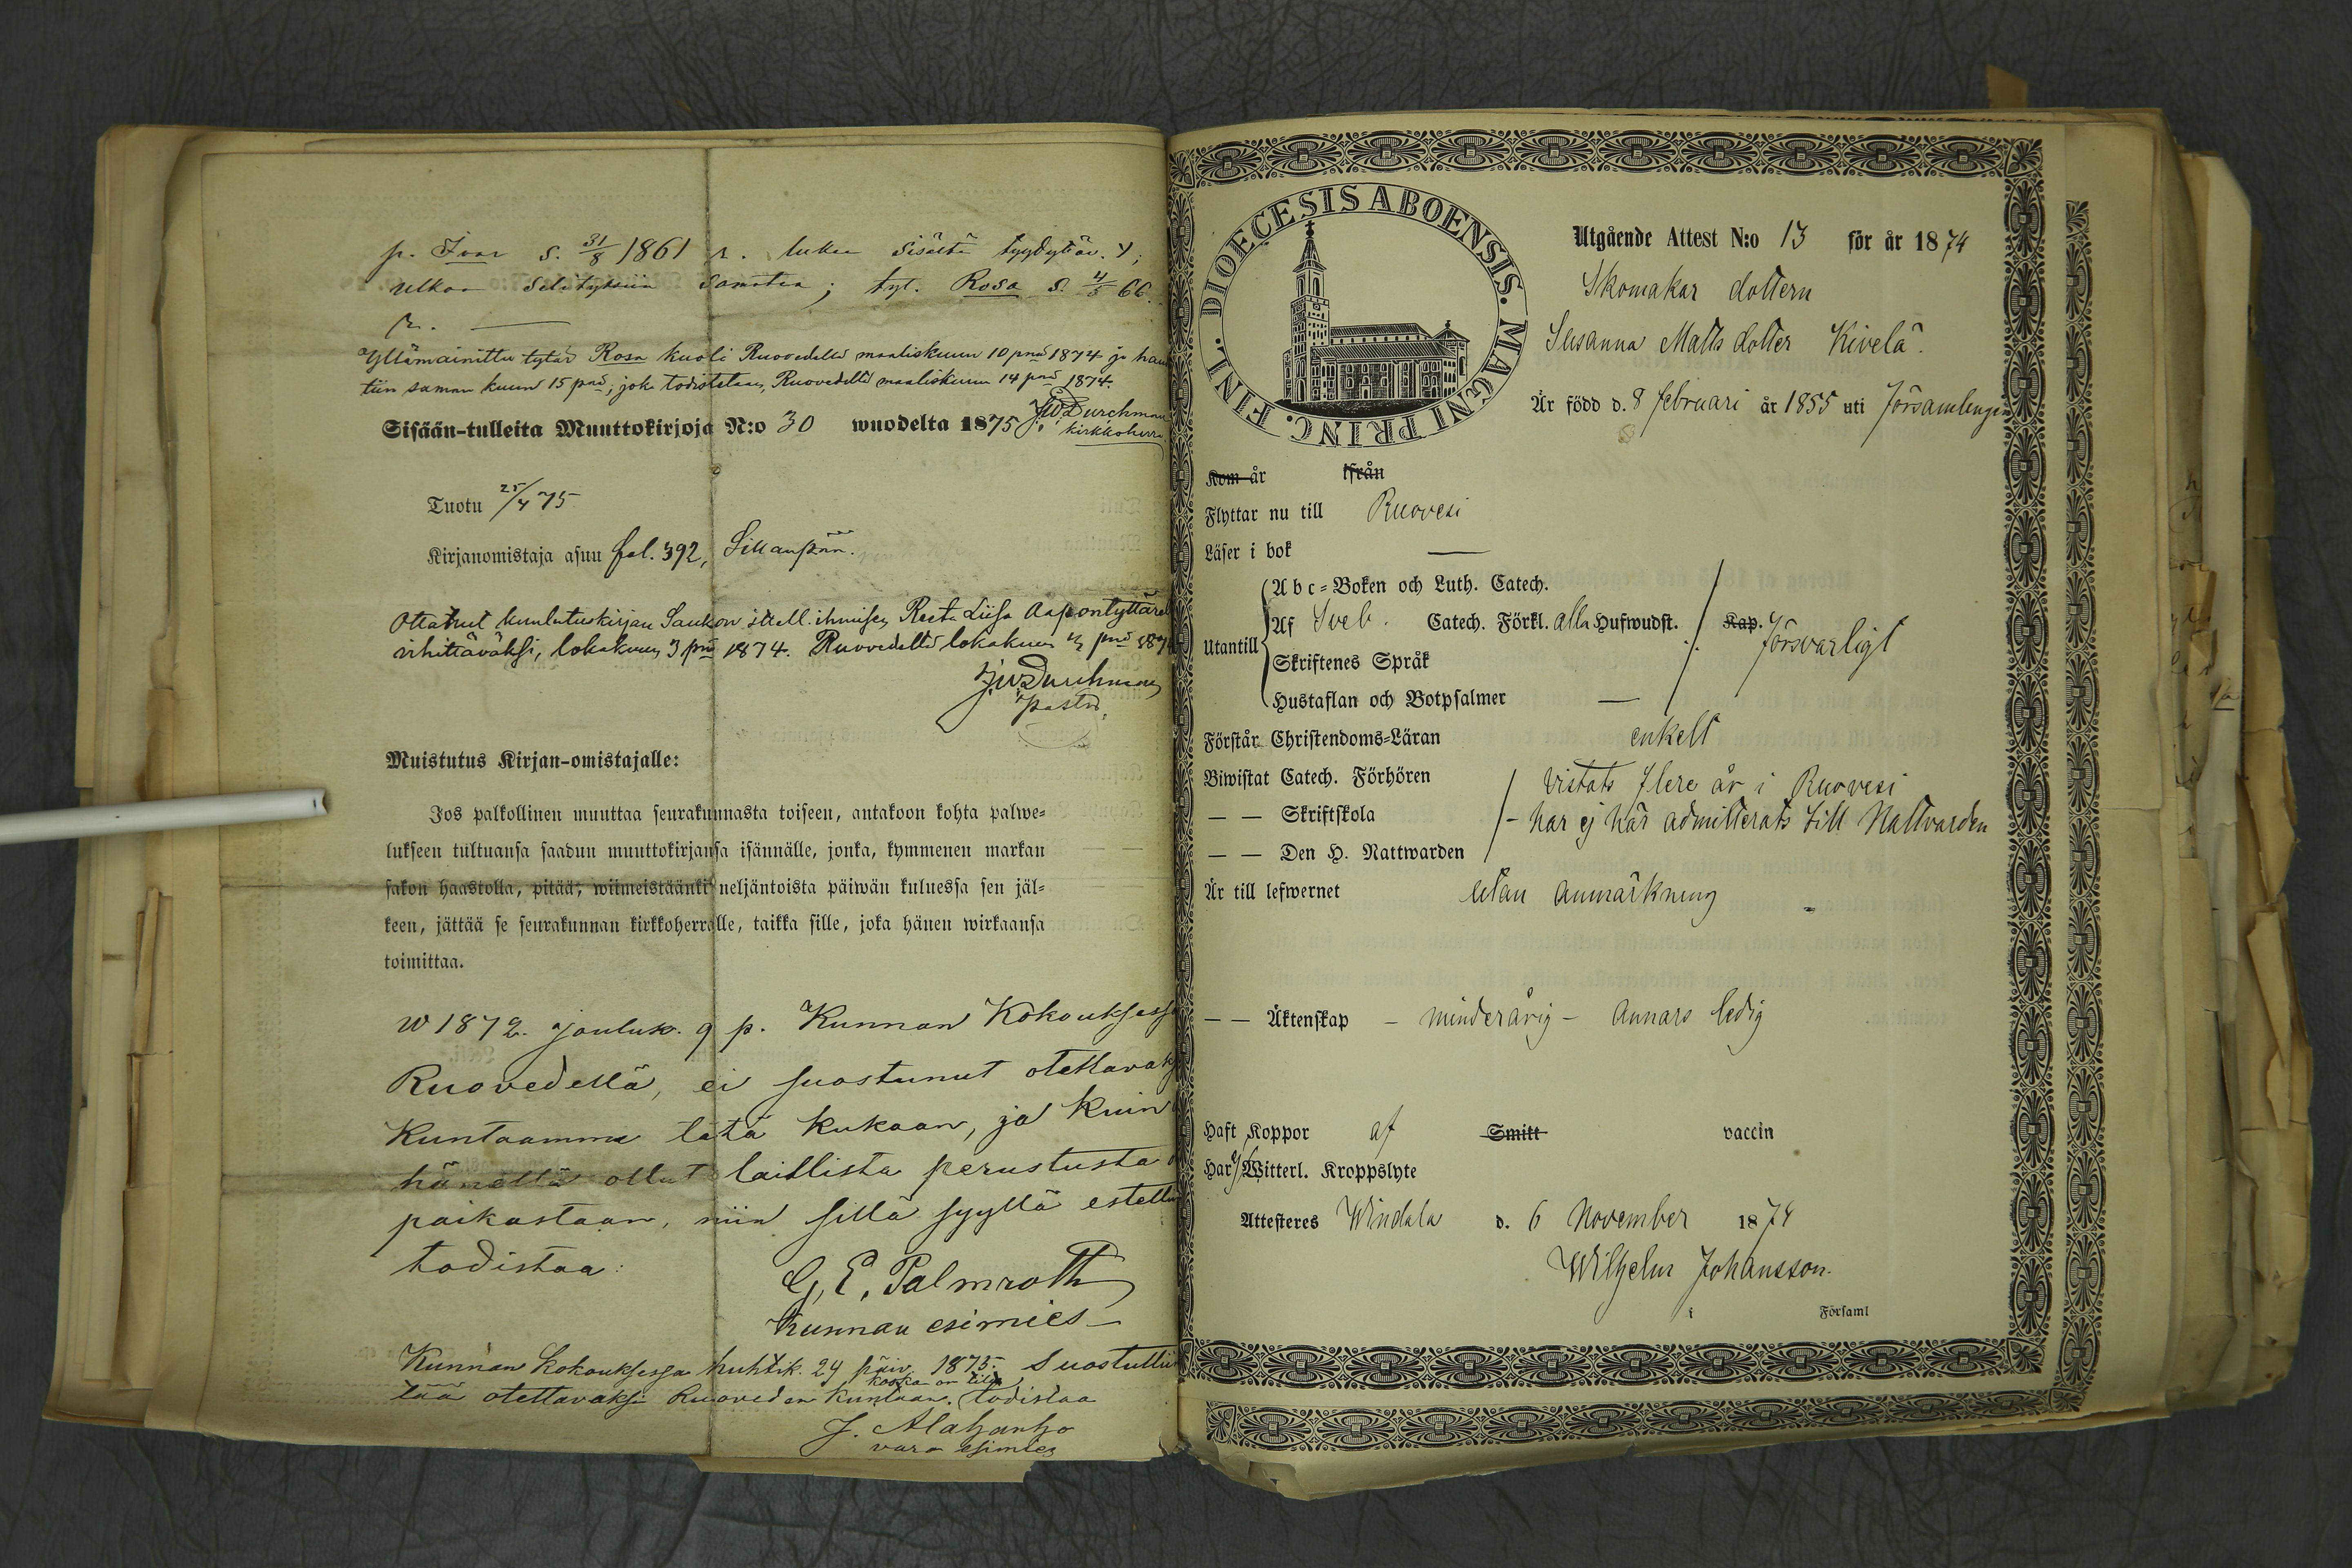 p. Ivar s. 31/8 1861 r. lukee sisältä tyydyttäv. Y;
ulkoa selityksiin samaten; tyt. Rosa s. 4/5 66.
r. —
Yllämainittu tytär Rosa kuoli Ruovedellä maaliskuun 10 pnä 1874 ja hau
tiin saman kuun 15 pnä; joka todistetaan, Ruovedellä maaliskuun 14 pnä 1874.
JWDurchman
kirkkoherra
Sisään-tulleita Muuttokirjoja N:o 30 wuodelta 1875
Tuotu 25/4 75
Kirjanomistaja asuu fol. 392, Sillanpään.
Ottanut kuulutuskirjan itsell. ihmisen Liisa Aapontyttären
vihittäväksi, lokakuun 3 pnä 1874. Ruovedellä lokakuun pnä 187
JWDurchman
pastor.
Muistutus Kirjan-omistajalle:
Jos palkollinen muuttaa seurakunnasta toiseen, antakoon kohta palwe-
lukseen tultuansa saadun muuttokirjansa isännälle, jonka, kymmenen markan
sakon haastolla, pitää, wiimeistäänki neljäntoista päiwän kuluessa sen jäl-
keen, jättää se seurakunnan kirkkoherralle, taikka sille, joka hänen wirkaansa
toimittaa.
W 1872. jouluk. 9 p. Kunnan Kokouksessa
Ruovedellä, ei suostunut otettavaksi
Kuntaamme tätä kukaan, ja kuin
hänellä ollut laillista perustusta
paikastaan, niin sillä syyllä estettu
todistaa:
G, E, Palmroth
Kunnan esimies
Kunnan Kokouksessa huhtik. 24 päiv. 1875. Suostuttiin
koska on tila
tää otettavaksi Ruoveden Kuntaan. todistaa
J. Alahanho
vara esimies
DIOECESIS ABOENSIS. MAGNI PRINC. FINL.
Utgående Attest N:o 13 för år 1874
Skomakar dottern
Susanna Matts dotter Kivelä.
Är född d. 8 februari år 1855 uti församlingen
Kom år ifrån
Flyttar nu till Ruovesi
Läser i bok —
Utantill
Abc-Boken och Luth. Catech.
Af Sveb. Catech. Förkl. alla Hufwudst. Kap. försvarligt
Skriftenes Språk
Hustaflan och Botpsalmer —
Förstår Christendoms-Läran enkelt
Biwistat Catech. Förhören vistats flere år i Ruovesi
— — Skriftskola - har ej här admitterats till Nattvarden
— — Den H. Nattwarden
Är till lefwernet utan anmärkning
— — Äktenskap – minderårig – annars ledig
Haft Koppor af Smitt vaccin
Har ej Witterl. Kroppslyte
Attesteres Windala d. 6 November 1874
Wilhelm Johansson.
i Församl